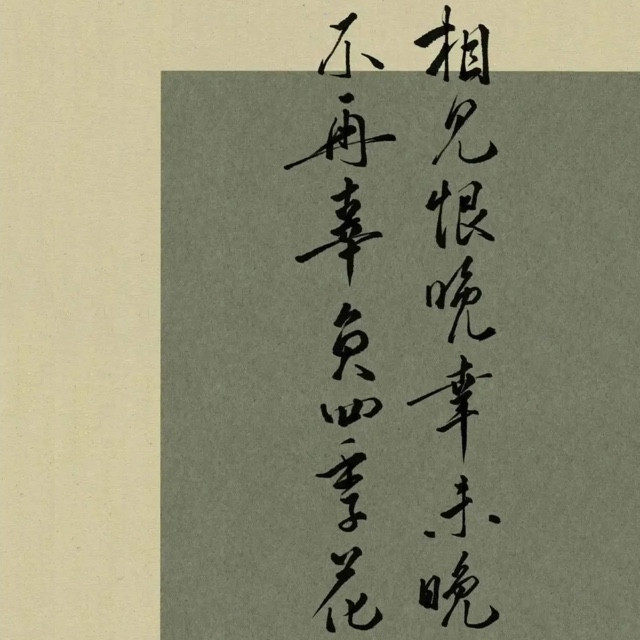 相见恨晚幸未晚
不再辜负四季花